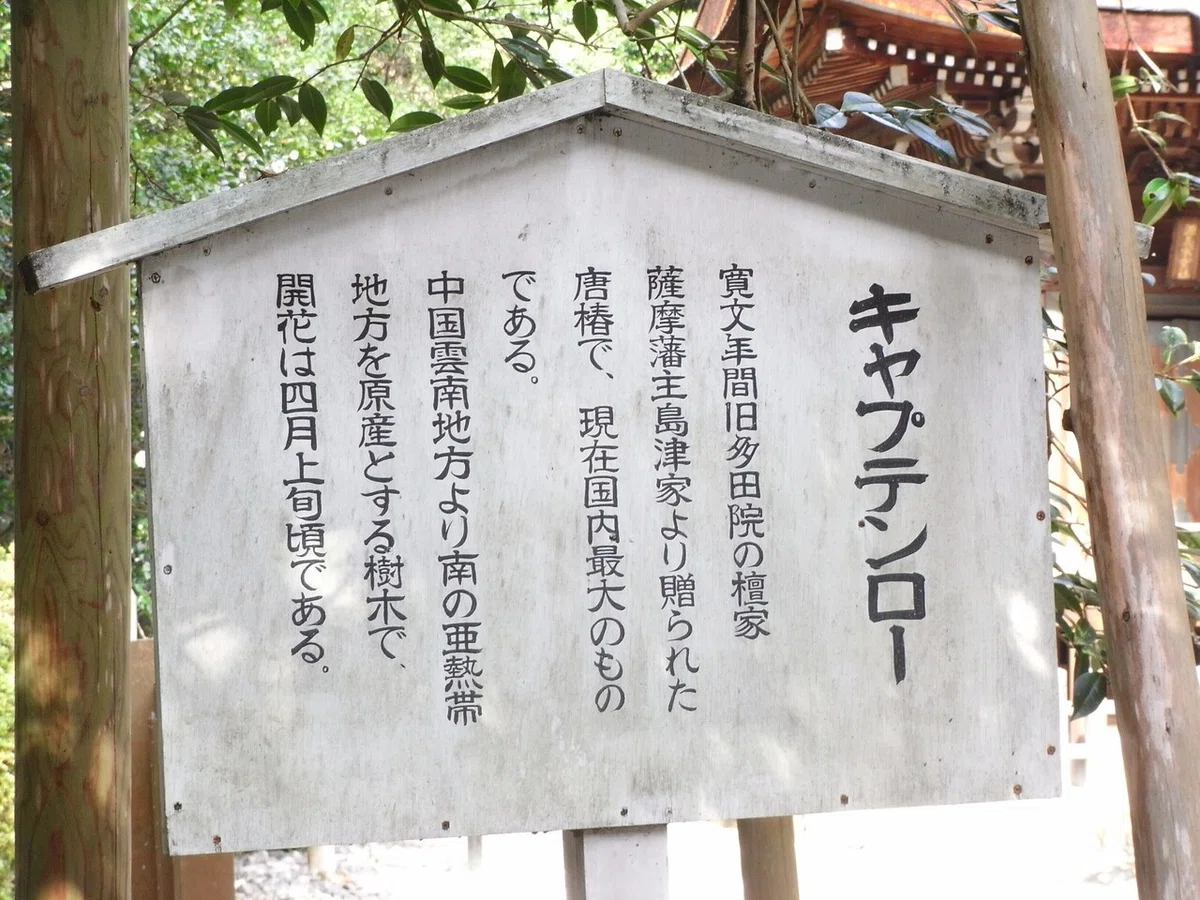 キャプテンロー
寛文年間旧多田院の檀家
薩摩藩主島津家より贈られた
唐椿で、現在国内最大のもの
である。
中国雲南地方より南の亜熱帯
地方を原産とする樹木で、
開花は四月上旬頃である。